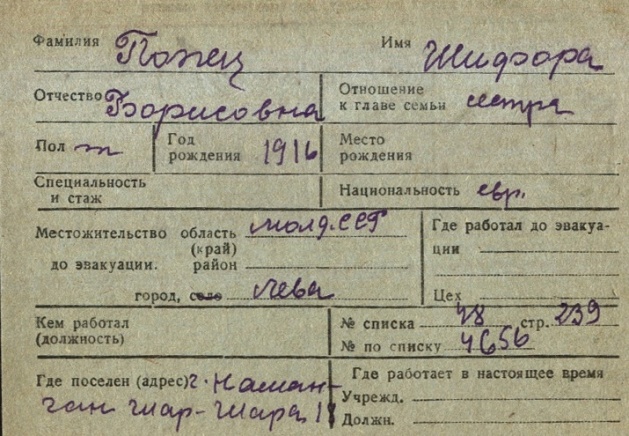 Фамилия Попец Имя Шифора
Отчество Борисовна Отношение к главе семьи сестра
Пол ж Год рождения 1916 Место рождения
Специальность и стаж Национальность евр.
Местожительство до эвакуации. область (край) молд. ССР
район
город, село Лева
Где работал до эвакуации
Цех
Кем работал (должность)
№ списка 48 стр. 239
№ по списку 4656
Где поселен (адрес) г. Наман-
ган Шар-Шара 18
Где работает в настоящее время
Учрежд.
Должн.